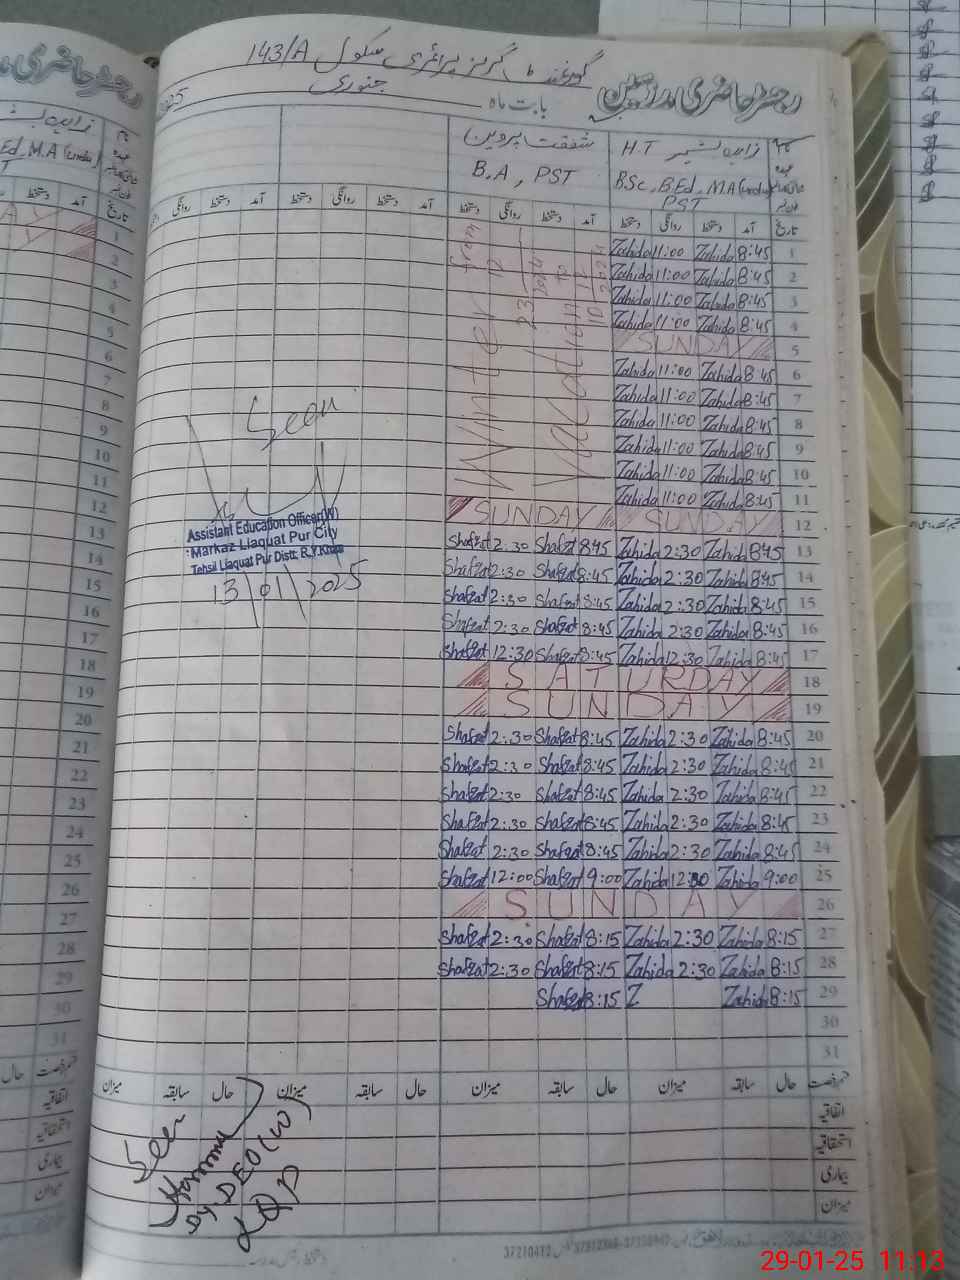 گورنمنٹ گرلز پرائمری سکول 143/A
رجسٹر حاضری مدرسین بابت ماہ جنوری 2025
نام زاہدہ بشیر H.T شفقت پروین
عہدہ B.Sc, B.Ed, M.A (Urdu) B.A, PST
PST
تاریخ آمد دستخط روانگی دستخط آمد دستخط روانگی دستخط آمد دستخط روانگی دستخط آمد دستخط روانگی
Winter Vacation from 23 12 2024 to 10
1 8:45 Zahida 11:00 Zahida
2 8:45 Zahida 11:00 Zahida
3 8:45 Zahida 11:00 Zahida
4 8:45 Zahida 11:00 Zahida
5 SUNDAY
6 8:45 Zahida 11:00 Zahida
7 8:45 Zahida 11:00 Zahida
8 8:45 Zahida 11:00 Zahida
9 8:45 Zahida 11:00 Zahida
10 8:45 Zahida 11:00 Zahida
11 8:45 Zahida 11:00 Zahida
12 SUNDAY SUNDAY
13 8:45 Zahida 2:30 Zahida 8:45 Shafqat 2:30 Shafqat
14 8:45 Zahida 2:30 Zahida 8:45 Shafqat 2:30 Shafqat
15 8:45 Zahida 2:30 Zahida 8:45 Shafqat 2:30 Shafqat
16 8:45 Zahida 2:30 Zahida 8:45 Shafqat 2:30 Shafqat
17 8:45 Zahida 12:30 Zahida 8:45 Shafqat 12:30 Shafqat
18 SATURDAY
19 SUNDAY
20 8:45 Zahida 2:30 Zahida 8:45 Shafqat 2:30 Shafqat
21 8:45 Zahida 2:30 Zahida 8:45 Shafqat 2:30 Shafqat
22 8:45 Zahida 2:30 Zahida 8:45 Shafqat 2:30 Shafqat
23 8:45 Zahida 2:30 Zahida 8:45 Shafqat 2:30 Shafqat
24 8:45 Zahida 2:30 Zahida 8:45 Shafqat 2:30 Shafqat
25 9:00 Zahida 12:30 Zahida 9:00 Shafqat 12:00 Shafqat
26 SUNDAY
27 8:15 Zahida 2:30 Zahida 8:15 Shafqat 2:30 Shafqat
28 8:15 Zahida 2:30 Zahida 8:15 Shafqat 2:30 Shafqat
29 8:15 Zahida Z 8:15 Shafqat
30
31
Seen
Assistant Education Officer(W)
Markaz Liaquat Pur City
Tehsil Liaquat Pur Distt: R.Y.Khan
13/01/2025
قسم رخصت حال سابقہ میزان حال سابقہ میزان حال سابقہ میزان حال سابقہ میزان
اتفاقیہ
استحقاقیہ
بیماری
میزان
Seen
Dy DEO(W)
LQP
رجسٹر حاضری
زاہدہ
Ed, M.A (Urdu)
آمد دستخط تاریخ
1
2
3
4
5
6
7
8
9
10
11
12
13
14
15
16
17
18
19
20
21
22
23
24
25
26
27
28
29
30
31
قسم رخصت حال
اتفاقیہ
استحقاقیہ
بیماری
میزان
29-01-25 11:13